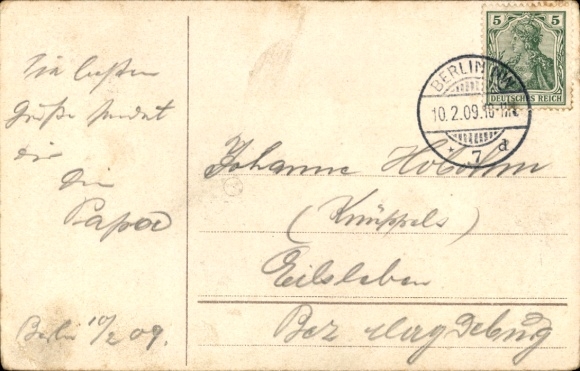 Die besten
Grüße sendet
dir
Dein
Papa
Berlin 10/2 09.
5 5
DEUTSCHES REICH
BERLIN NW
10.2.09.
* 7 d
Johanne
(Knüppels)
Eilsleben
Bez Magdeburg